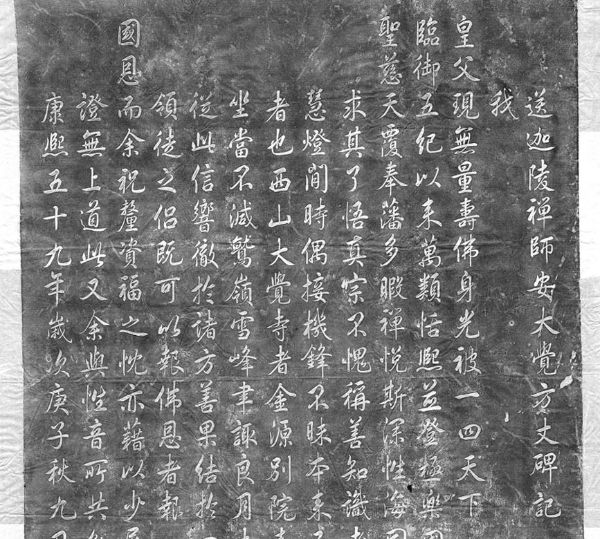 送迦陵禪師安大覺方丈碑記
我
皇父現無量壽佛身光被一四天下
臨御五紀以來萬類恬熙並登極樂
聖慈天覆奉藩多暇禪悅斯深性海
求其了悟真宗不愧稱善知識
慧燈閒時偶接機鋒不昧本來
者也西山大覺寺者金源別院
坐當不減鷲嶺雪峰聿諏良月
從此信響徹於諸方善果結於
領徒之侶既可以報佛恩者報
國恩而余祝釐資福之忱亦藉以少
證無上道此又余與性音所共
康熙五十九年歲次庚子秋九月